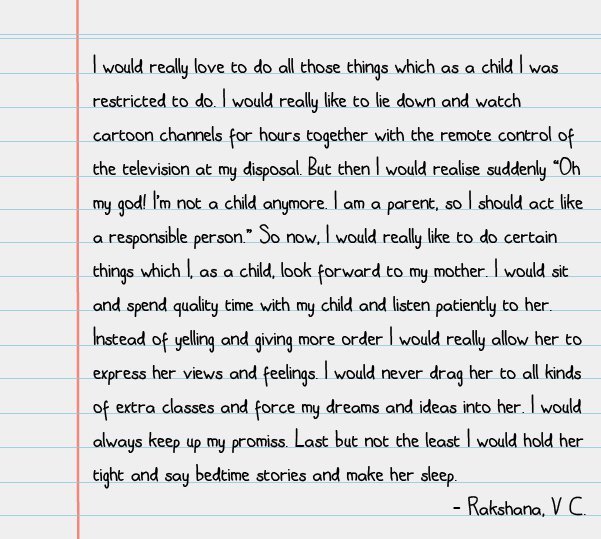 I would really love to do all those things which as a child I was
restricted to do. I would really like to lie down and watch
cartoon channels for hours together with the remote control of
the television at my disposal. But then I would realise suddenly "Oh
my god! I'm not a child anymore. I am a parent, so I should act like
a responsible person." So now, I would really like to do certain
things which I, as a child, look forward to my mother. I would sit
and spend quality time with my child and listen patiently to her.
Instead of yelling and giving more order I would really allow her to
express her views and feelings. I would never drag her to all kinds
of extra classes and force my dreams and ideas into her. I would
always keep up my promiss. Last but not the least I would hold her
tight and say bedtime stories and make her sleep.
- Rakshana, V C.